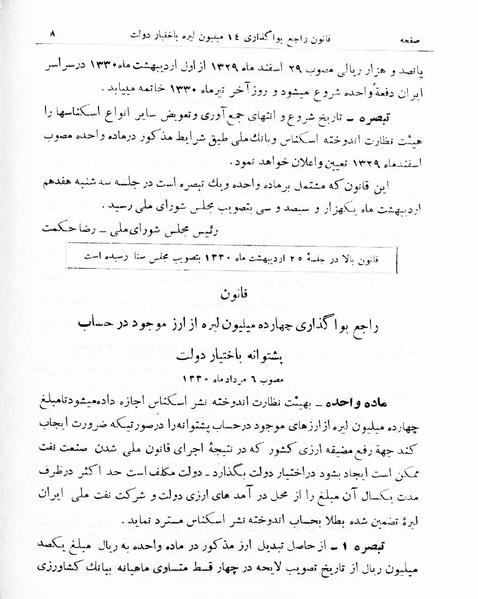 صفحه قانون راجع بواگذاری ۱۴ میلیون لیره باختیار دولت ۸
پانصد و هزار ریالی مصوب ۲۹ اسفند ماه ۱۳۲۹ از اول اردیبهشت ماه ۱۳۳۰ درسراسر
ایران دفعةً واحده شروع میشود و روز آخر تیرماه ۱۳۳۰ خاتمه مییابد.
تبصره ـ تاریخ شروع و انتهای جمع‌آوری وتعویض سایر انواع اسکناسها را
هیئت نظارت اندوخته اسکناس وبانك‌ملی طبق شرایط مذکور درماده واحده مصوب
اسفندماه ۱۳۲۹ تعیین واعلان خواهد نمود.
این قانون‌که مشتمل برماده واحده ویك تبصره است در جلسه سه شنبه هفدهم
اردیبهشت ماه یکهزار و سیصد و سی بتصویب مجلس شورای ملی رسید.
رئیس مجلس شورای‌ملی ـ رضا حکمت
قانون بالا در جلسهٔ ۲۵ اردیبهشت ماه ۱۳۳۰ بتصویب مجلس سنا رسیده است
قانون
راجع بواگذاری چهارده میلیون لیره از ارز موجود در حساب
پشتوانه باختیار دولت
مصوب ۶ مرداد ماه ۱۳۳۰
ماده واحده ـ بهیئت نظارت اندوخته نشر اسکناس اجازه داده‌میشود تامبلغ
چهارده میلیون لیره از ارزهای موجود درحساب پشتوانه‌را درصورتیکه ضرورت ایجاب
کند جهة رفع مضیقه ارزی کشور که در نتیجهٔ اجرای قانون ملی شدن صنعت نفت
ممکن است ایجاد بشود دراختیار دولت بگذارد ـ دولت مکلف است حد اکثر درظرف
مدت یکسال آن مبلغ را از محل در آمد های ارزی دولت و شرکت نفت ملی ایران
لیرهٔ تضمین شده بطلا بحساب اندوخته نشر اسکناس مسترد نماید.
تبصره ۱ ـ از حاصل تبدیل ارز مذکور در ماده واحده به ریال مبلغ یکصد
میلیون ریال از تاریخ تصویب لایحه در چهار قسط متساوی ماهیانه ببانك کشاورزی